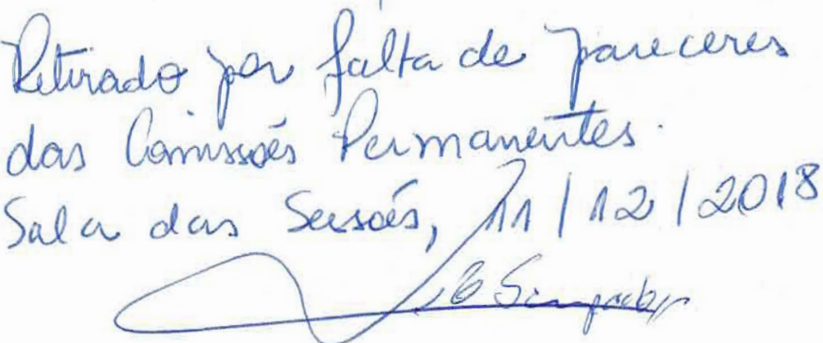 Retirado por falta de pareceres
das Comissões Permanentes.
Sala das Sessões, 11/12/2018